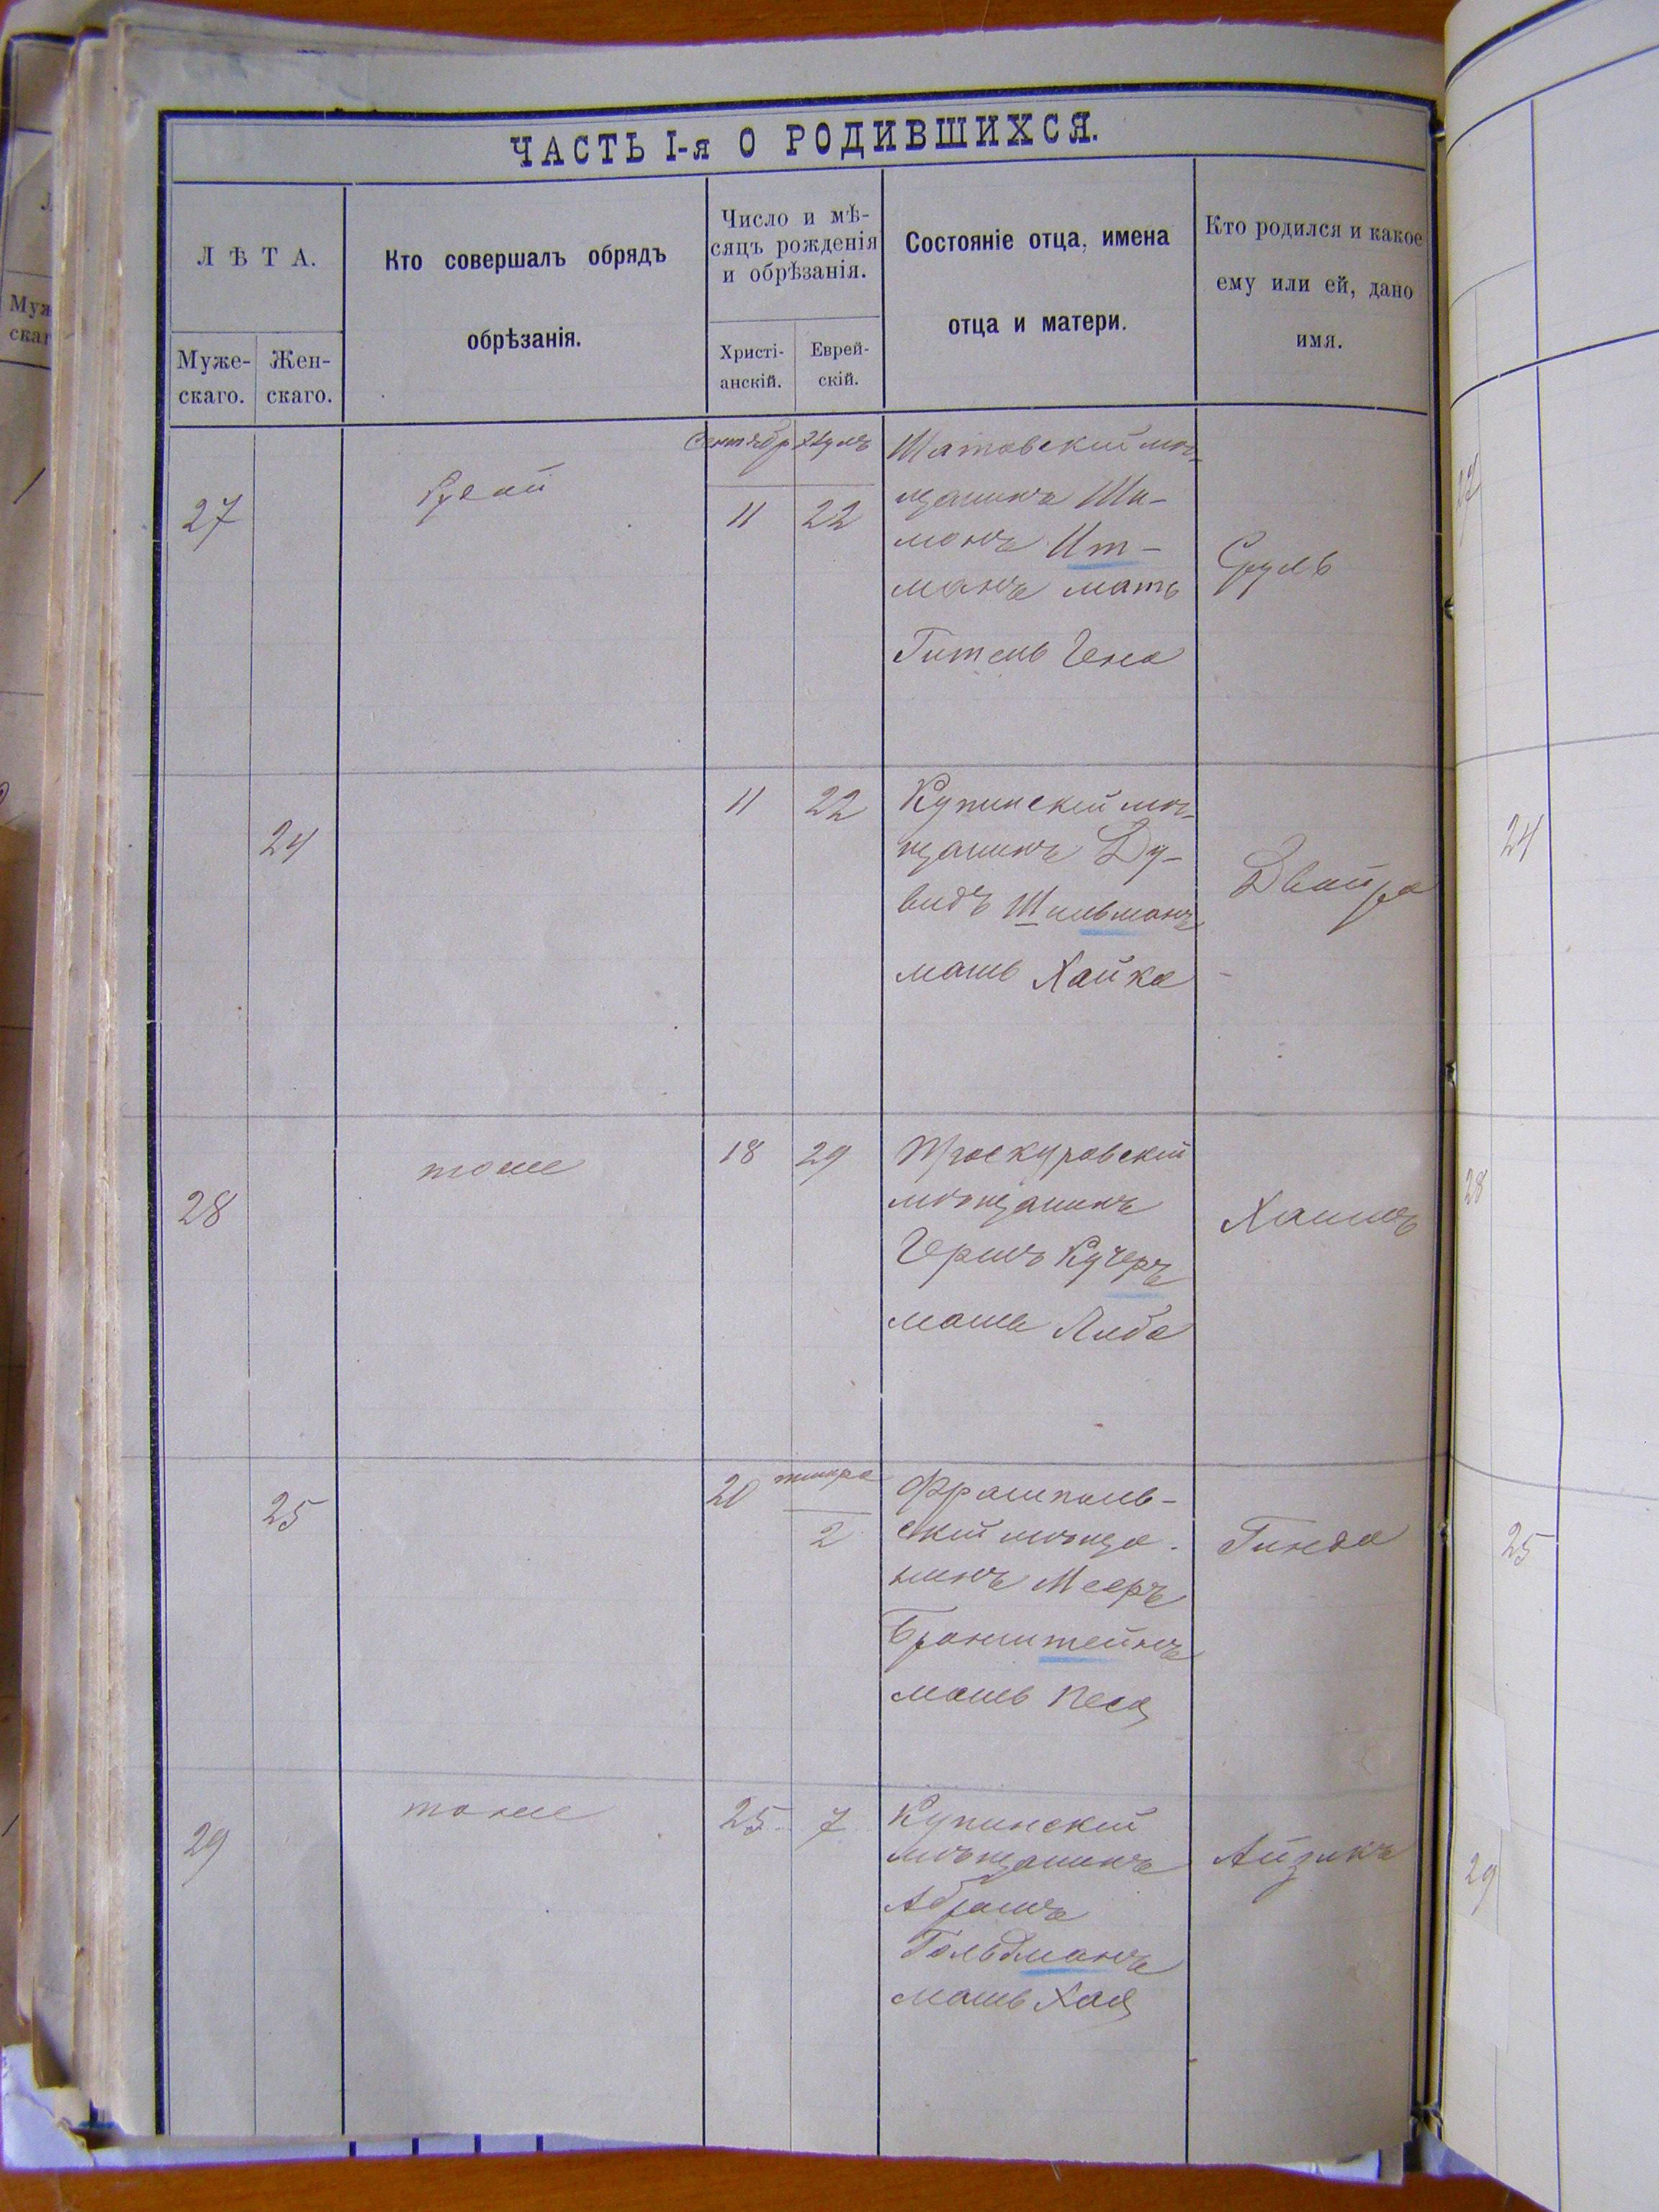 ЧАСТЬ I-я О РОДИВШИХСЯ.
ЛѢТА.
Муже-
скаго.
Жен-
скаго.
Кто совершалъ обрядъ
обрѣзанія.
Число и мѣ-
сяцъ рожденія
и обрѣзанія.
Христі-
анскій.
Еврей-
скій.
Состояніе отца, имена
отца и матери.
Кто родился и какое
ему или ей, дано
имя.
27
Сентябр
11
Элулъ
22
Шатовскій мѣ-
щанинъ Ши-
монъ Ит-
манъ мать
Гитель Гена
Сруль
24
11
22
Купинскій мѣ-
щанинъ Ду-
видъ Шильманъ
мать Хайка
Двойра
28
тоже
18
29
Проскуровскій
мѣщанинъ
Гершъ Кучеръ
мать Либа
Хаимъ
25
20
тишре
2
Фрампольв-
скій мѣща-
нинъ Мееръ
Бронштейнъ
мать Песя
Гинда
29
тоже
25
7
Купинскій
мѣщанинъ
Абрамъ
Гольдманъ
мать Хая
Айзикъ
27
24
28
25
29